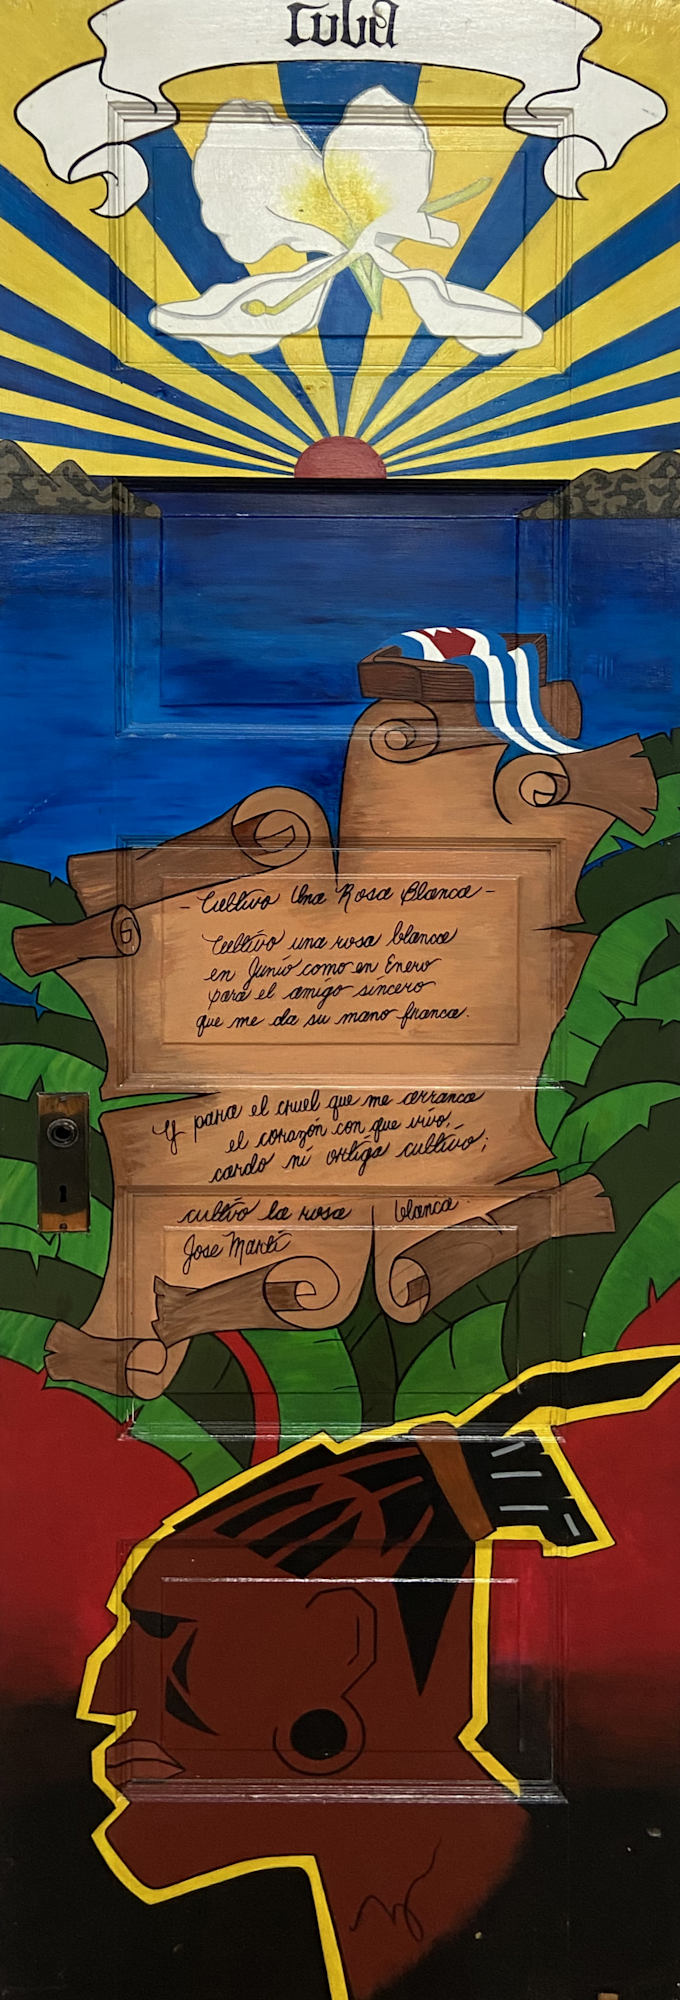 Cuba
- Cultivo Una Rosa Blanca -
Cultivo una rosa blanca
en Junio como en Enero
para el amigo sincero
que me da su mano franca.
Y para el cruel que me arranca
el corazón con que vivo,
cardo ni ortiga cultivo;
cultivo la rosa blanca.
Jose Martí